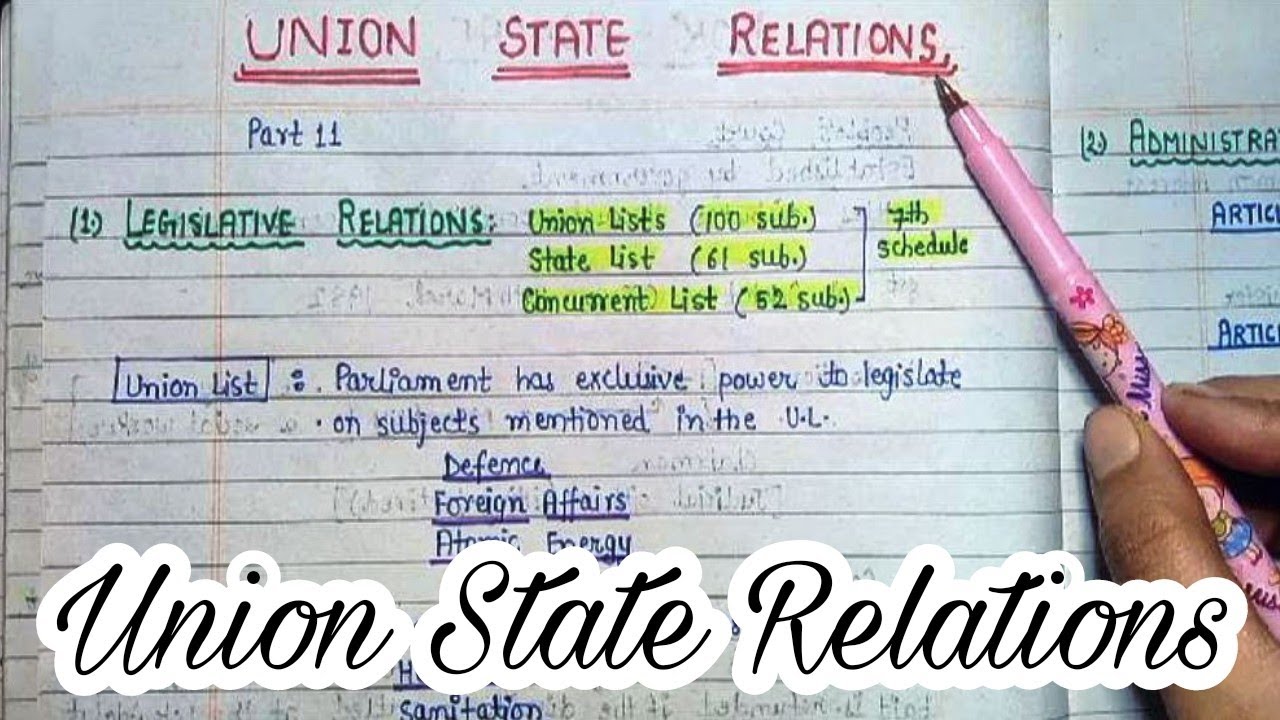 UNION STATE RELATIONS,
Part 11
(1) LEGISLATIVE RELATIONS: Union Lists (100 sub.)
State List (61 sub.)
Concurrent List (52 sub.)
7th
schedule
Union List : Parliament has exclusive power to legislate
on subjects mentioned in the U.L.
Defence
Foreign Affairs
Atomic Energy
sanitation
(2) ADMINISTRA
ARTIC
ARTIC
Union State Relations